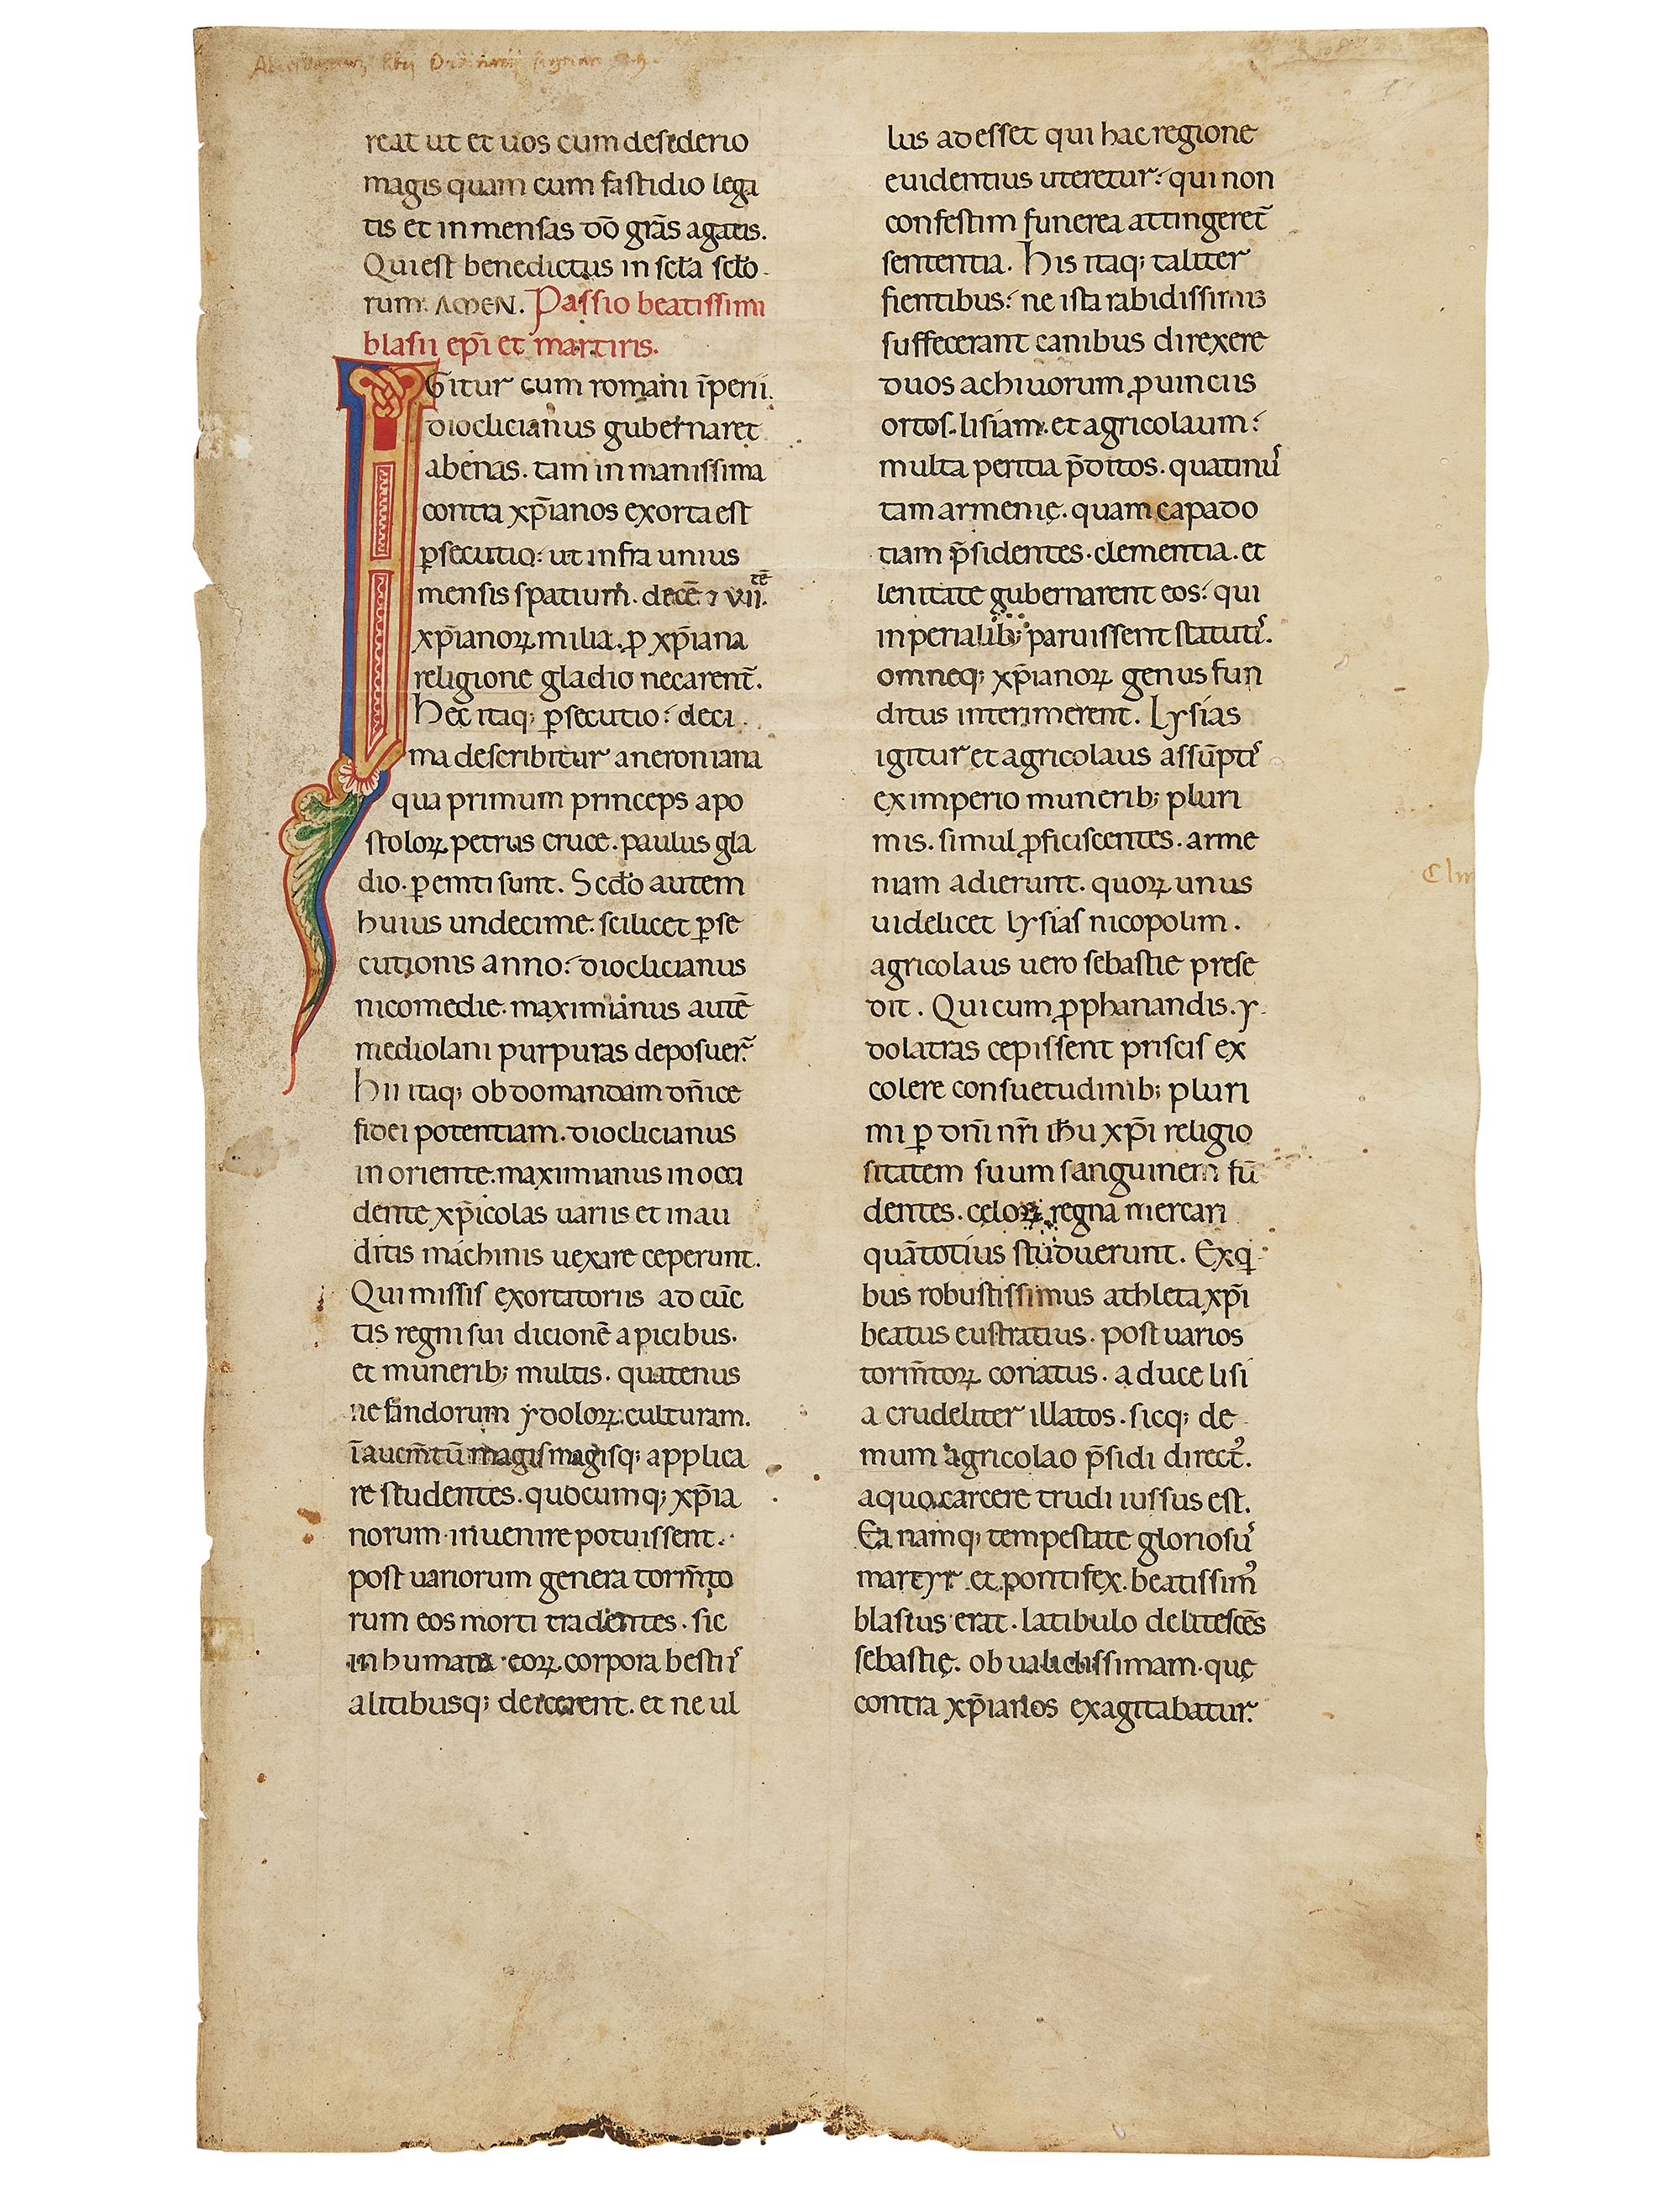 reat ut et uos cum desederio
magis quam cum fastidio lega
tis et in mensas dō grās agatis.
Qui est benedictus in scła scło
rum. AMEN. Passio beatissimi
blasii ep̄i et martiris.
IGitur cum romani īperii.
dioclicianus gubernaret
abenas. tam in manissima
contra xp̄ianos exorta est
ꝑsecutio: ut infra unius
mensis spatium. decē ⁊ vii.tē
xp̄ianoꝝ milia. ꝑ xp̄iana
religione gladio necarent̄.
Hec itaq; ꝑsecutio: deci
ma describitur a neroniana
qua primum princeps apo
stoloꝝ petrus cruce. paulus gla
dio. ꝑemti sunt. Scdo autem
huius undecime. scilicet ꝑse
cutionis anno: dioclicianus
nicomedie. maximianus autē
mediolani purpuras deposuer̄.
Hii itaq; ob domandam dn̄ice
fidei potentiam. dioclicianus
in oriente. maximianus in occi
dente xp̄icolas uariis et inau
ditis machinis uexare ceperunt.
Qui missis exortatoriis ad cūc
tis regni sui dicionē apicibus.
et munerib; multis. quatenus
nefandorum ydoloꝝ. culturam.
īaucm̄tū magis magisq; applica
re studentes. quocumq; xp̄ia
norum inuenire potuissent.
post uariorum genera torm̄to
rum eos morti tradentes. sic
inhumata eoꝝ corpora bestiis
alitibusq; deicerent. et ne ul
lus adesset qui hac regione
euidentius uteretur: qui non
confestim funerea attingeret̄
sententia. His itaq; taliter
fientibus: ne ista rabidissimis
suffecerant canibus direxere
duos achiuorum ꝓuinciis
ortos. lisiam. et agricolaum:
multa peritia p̄ditos. quatinus
tam armenię. quam capado
tiam p̄sidentes. clementia. et
lenitate gubernarent eos: qui
inperialib; paruissent statutis.
omneq; xp̄ianoꝝ genus fun
ditus interimerent. Lysias
igitur et agricolaus assūpti
ex imperio munerib; pluri
mis. simul ꝓficiscentes. arme
niam adierunt. quoꝝ unus
uidelicet lysias nicopolim.
agricolaus uero sebastie prese
dit. Qui cum ꝓphanandis. y
dolatras cepissent priscis ex
colere consuetudinib; pluri
mi ꝑ dn̄i nr̄i ih̄u xp̄i religio
sitatem suum sanguinem fū
dentes. celoꝝ regna mercari
quātotius studuerunt. Ex qi
bus robustissimus athleta xp̄i
beatus eustratius. post uarios
torm̄toꝝ coriatus. a duce lisi
a crudeliter illatos. sicq; de
mum agricolao p̄sidi direct᾿.
a quo carcere trudi iussus est.
Ea namq; tempestate gloriosus
martyr et pontifex. beatissim᾿
blasius erat. latibulo delitescēs
sebastię. ob ualidissimam. quę
contra xp̄ianos exagitabatur.